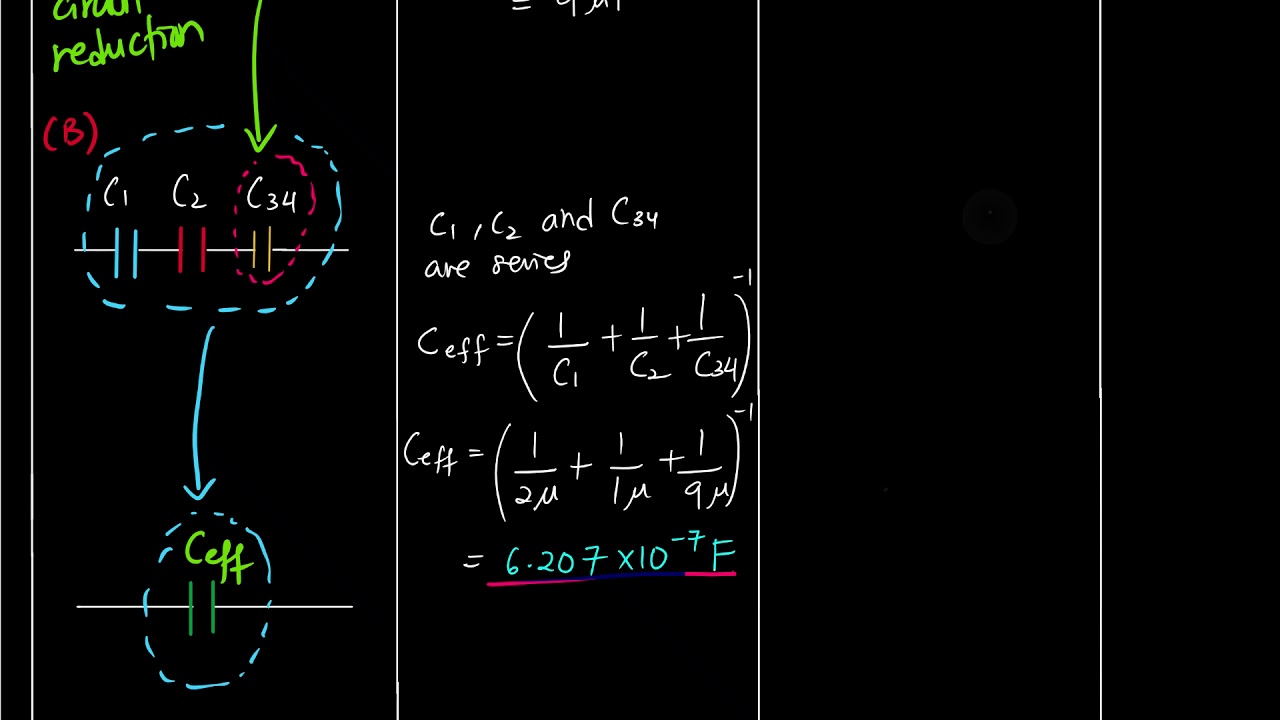 reduction
(B)
C₁ C₂ C₃₄
Ceff
= 9μF
C₁, C₂ and C₃₄
are series
Ceff = (1/C₁ + 1/C₂ + 1/C₃₄)⁻¹
Ceff = (1/2μ + 1/1μ + 1/9μ)⁻¹
= 6.207 ×10⁻⁷ F